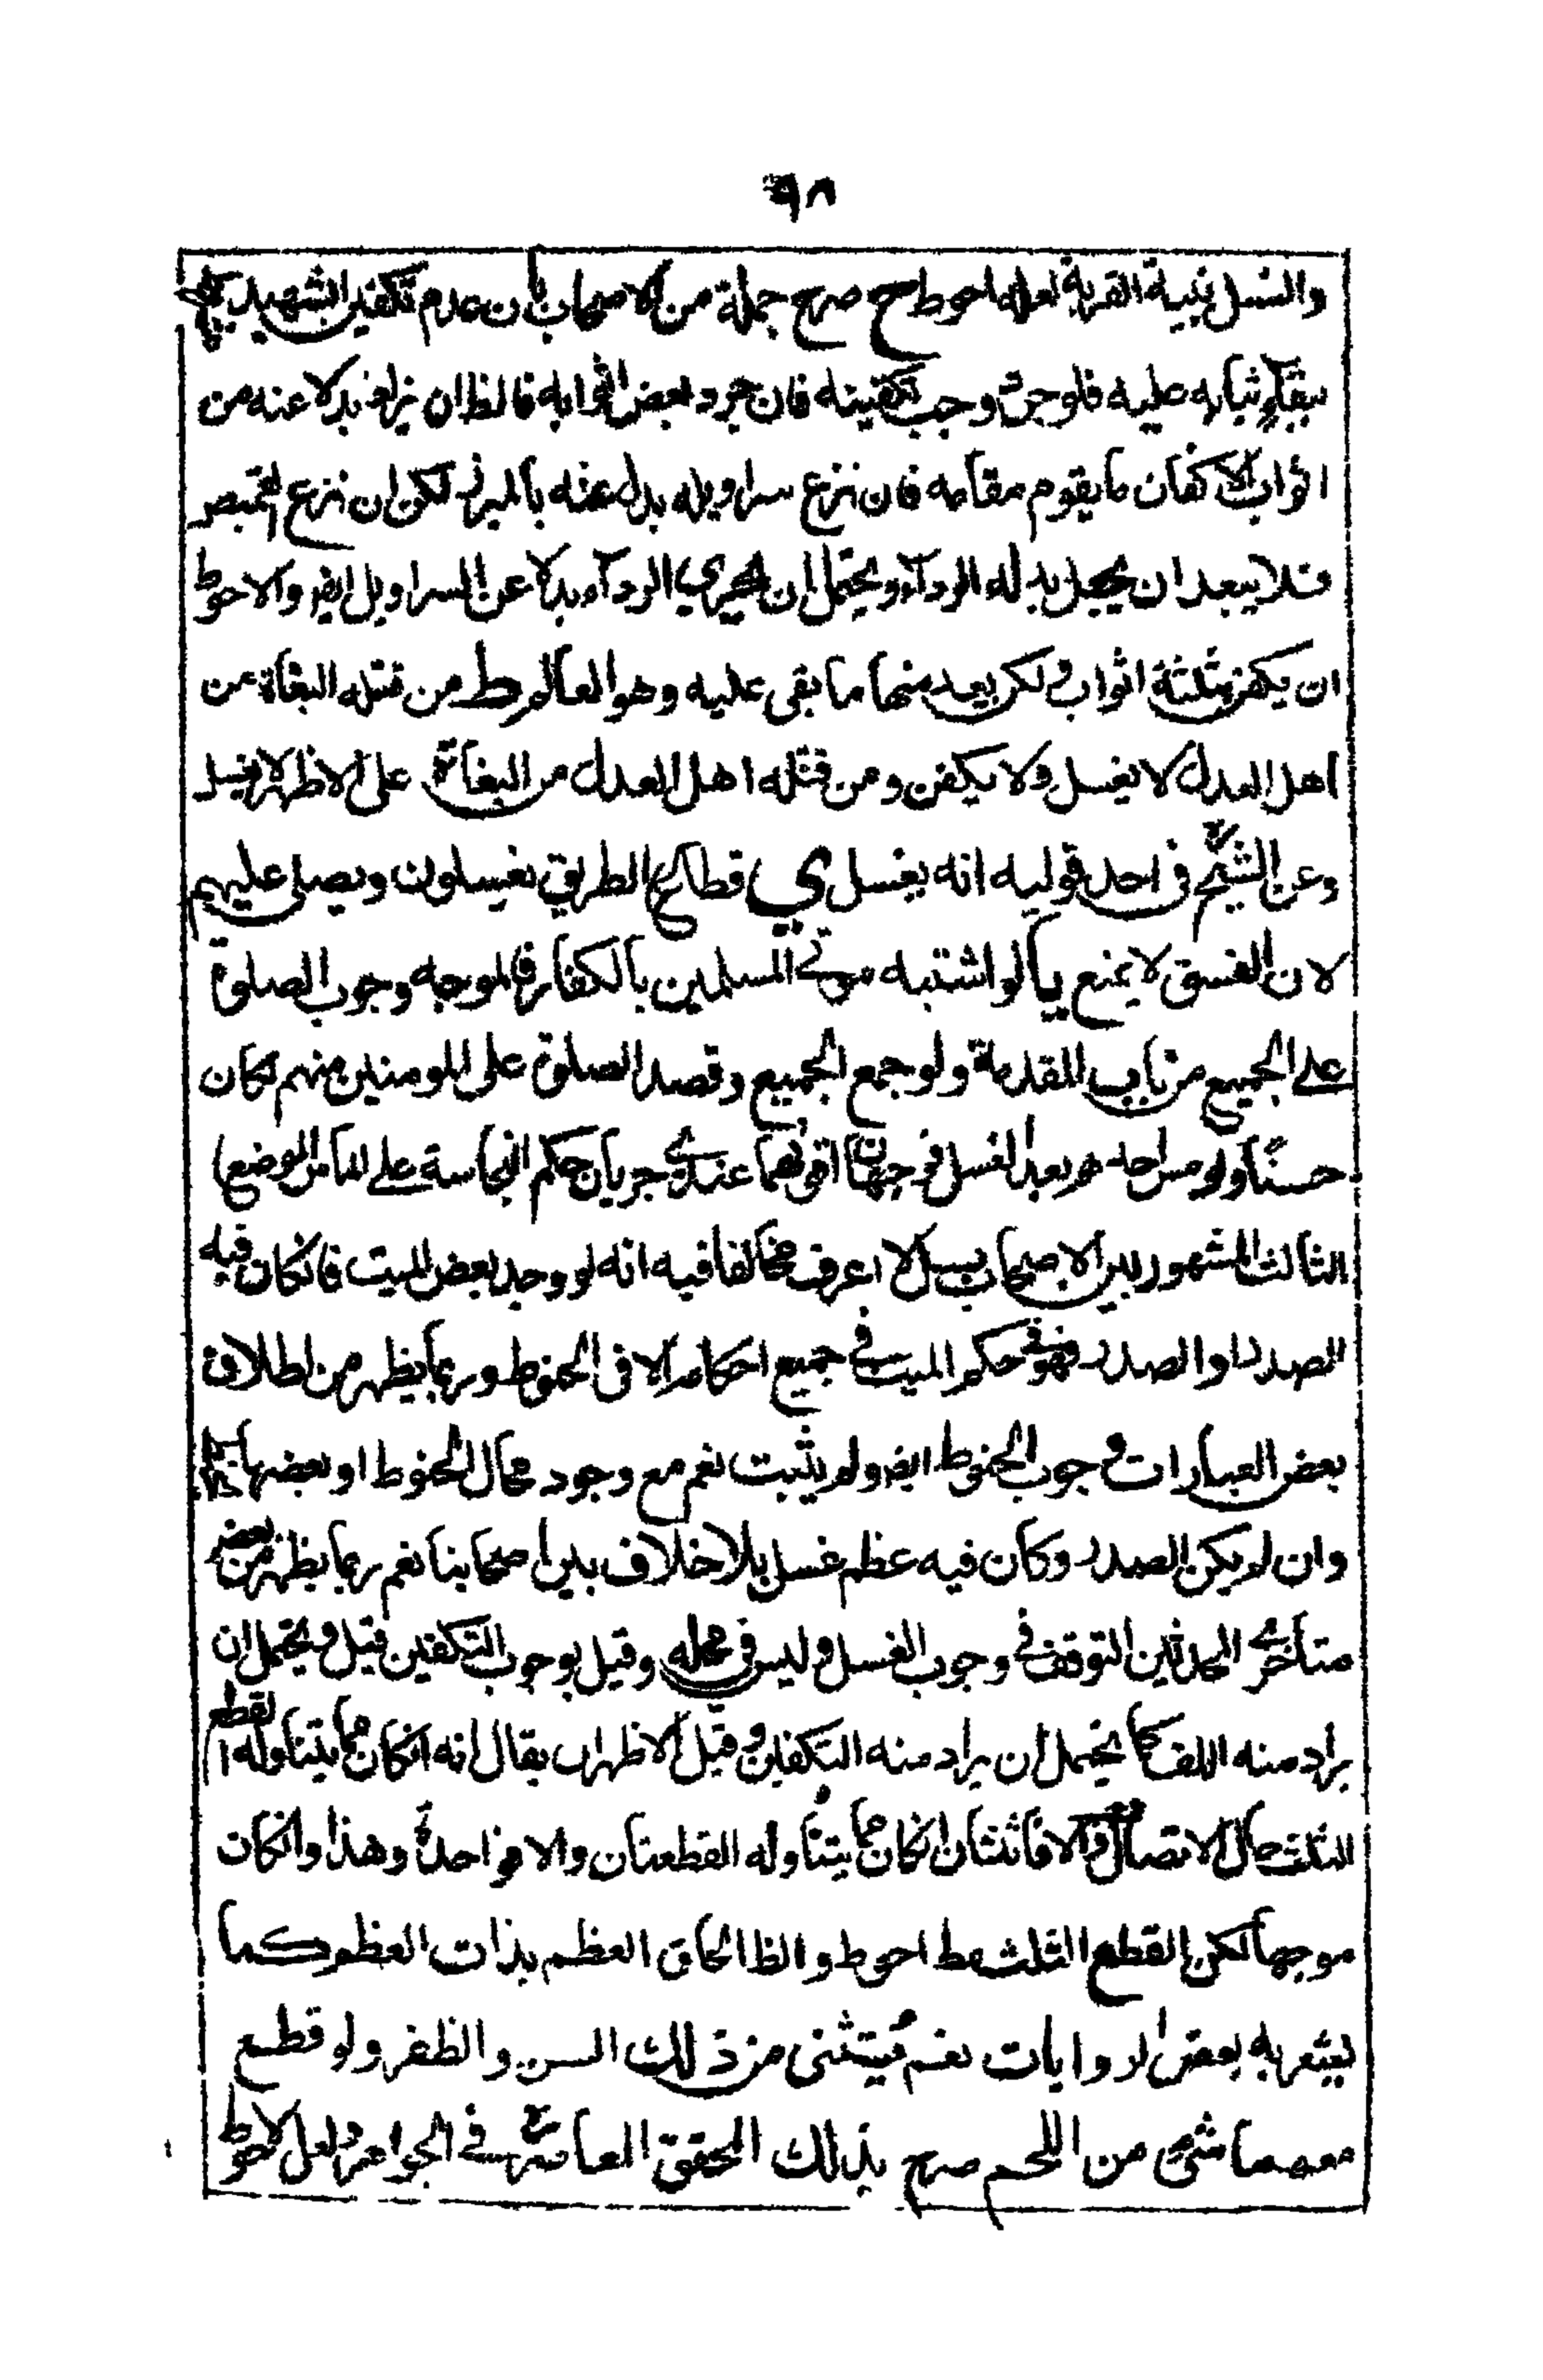 ٩٨
والغسل بنية القربة لعله احوط ح صرح جملة من الاصحاب بان عدم تكفين الشهيد
ببقاء ثيابه عليه فلو جرد وجب تكفينه فان جرد بعض اثوابه فالظ ان يزاد بدلا عنه من
اثواب الاكفان ما يقوم مقامه فان نزع سراويله بدل عنه بالميزر لكن ان نزع القميص
فلا يبعد ان يجعل بدله الردآء ويحتمل ان يجزي الردآء بدلا عن السراويل ايضا والاحوط
ان يكفن بثلثة اثواب لكن يعد منها ما بقى عليه وهو العالم ط من قتله البغاة من
اهل العدل لا يغسل ولا يكفن ومن قتله اهل العدل من البغاة على الاظهر لا يغسل
وعن الشيخ في احد قوليه انه يغسل ي قطاع الطريق يغسلون ويصلى عليهم
لان الفسق لا يمنع يا لو اشتبه موتى المسلمين بالكفار فالموجه وجوب الصلوة
على الجميع من باب المقدمة ولو جمع الجميع وقصد الصلوة على المومنين منهم لكان
حسنًا ولو مس احدهم بعد الغسل فوجهان اقويهما عندي جريان حكم النجاسة على الماس الموضع
الثالث المشهور بين الاصحاب بل لا اعرف مخالفا فيه انه لو وجد بعض الميت فانكان فيه
الصدر او الصدر فهو في حكم الميت في جميع احكامه الا في الحنوط وربما يظهر من اطلاق
بعض العبارات وجوب الحنوط ايضا ولم يثبت نعم مع وجود محال الحنوط او بعضها
وان لم يكن الصدر وكان فيه عظم غسل بلا خلاف بين اصحابنا نعم ربما يظهر من بعض
متأخري المحدثين التوقف في وجوب الغسل وليس في محله وقيل بوجوب التكفين قيل ويحتمل ان
يراد منه اللف كما يحتمل ان يراد منه التكفين وقيل الاظهر ان يقال انه انكان مما يتناوله القطع
الثلث حال الاتصال والا فاثنتان انكان مما يتناوله القطعتان والا فواحدة وهذا وانكان
موجها لكن القطع الثلث مط احوط والظ الحاق العظم بذات العظم كما
يشعر به بعض الروايات نعم يستثنى من ذلك السن والظفر ولو قطع
معهما شئ من اللحم صرح بذلك المحقق المعاصر في الجواهر ولعل الاحوط